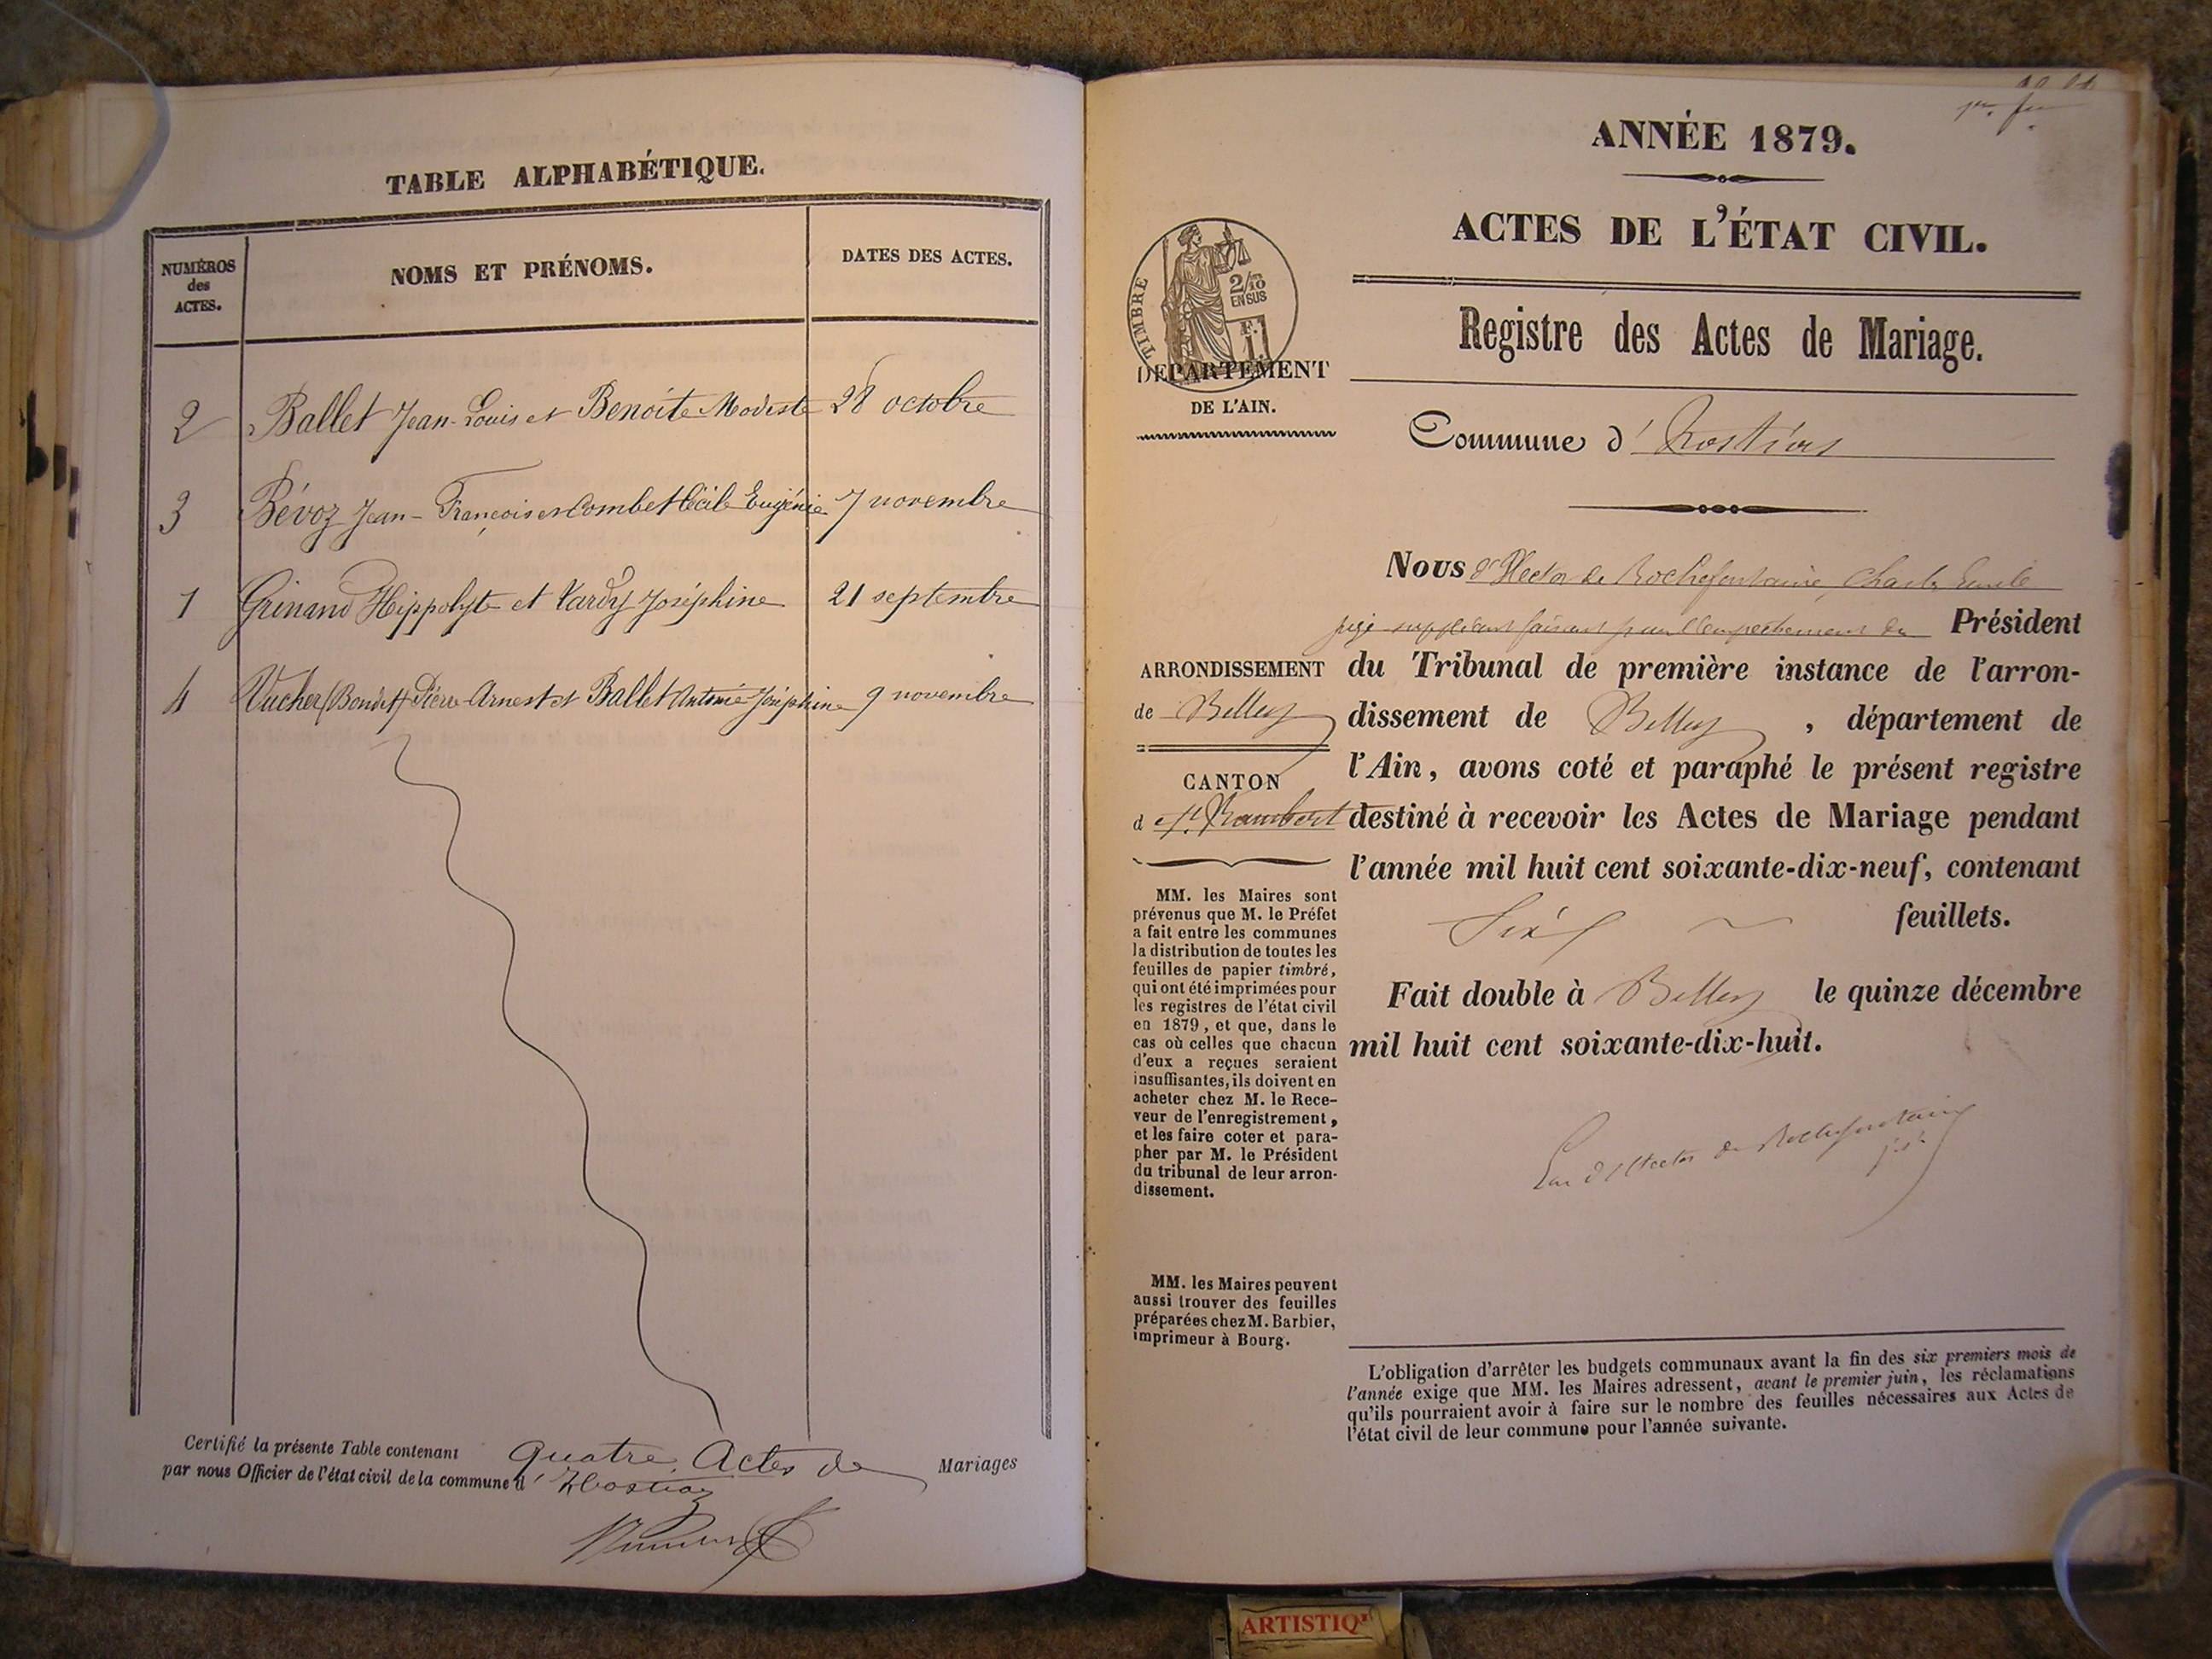 TABLE ALPHABÉTIQUE.
NUMÉROS
des
ACTES.
NOMS ET PRÉNOMS.
DATES DES ACTES.
2 Ballet Jean-Louis et Benoite Modeste 28 octobre
3 Bévoz Jean-François et Combet Cécile Eugénie 7 novembre
1 Grinand Hippolyte et Tardy Joséphine 21 septembre
4 Vucher (Bondet) Pierre Arnest et Ballet Antonie Joséphine 9 novembre
Certifié la présente Table contenant quatre Actes de Mariages
par nous Officier de l'état civil de la commune d' Hostiaz
ANNÉE 1879.
ACTES DE L'ÉTAT CIVIL.
Registre des Actes de Mariage.
TIMBRE
2/10
EN SUS
F. 1
DÉPARTEMENT
DE L'AIN.
Commune d' Hostias
Nous d'Hector de Rochefontaine, Charles Emile
juge suppléant faisant pour l'empêchement du Président
du Tribunal de première instance de l'arron-
dissement de Belley, département de
l'Ain, avons coté et paraphé le présent registre
destiné à recevoir les Actes de Mariage pendant
l'année mil huit cent soixante-dix-neuf, contenant
Six feuillets.
Fait double à Belley le quinze décembre
mil huit cent soixante-dix-huit.
d'Hector de Rochefontaine
j. s.
ARRONDISSEMENT
de Belley
CANTON
d e St. Rambert
MM. les Maires sont
prévenus que M. le Préfet
a fait entre les communes
la distribution de toutes les
feuilles de papier timbré,
qui ont été imprimées pour
les registres de l'état civil
en 1879, et que, dans le
cas où celles que chacun
d'eux a reçues seraient
insuffisantes, ils doivent en
acheter chez M. le Rece-
veur de l'enregistrement,
et les faire coter et para-
pher par M. le Président
du tribunal de leur arron-
dissement.
MM. les Maires peuvent
aussi trouver des feuilles
préparées chez M. Barbier,
imprimeur à Bourg.
L'obligation d'arrêter les budgets communaux avant la fin des six premiers mois de
l'année exige que MM. les Maires adressent, avant le premier juin, les réclamations
qu'ils pourraient avoir à faire sur le nombre des feuilles nécessaires aux Actes de
l'état civil de leur commune pour l'année suivante.
ARTISTIQ